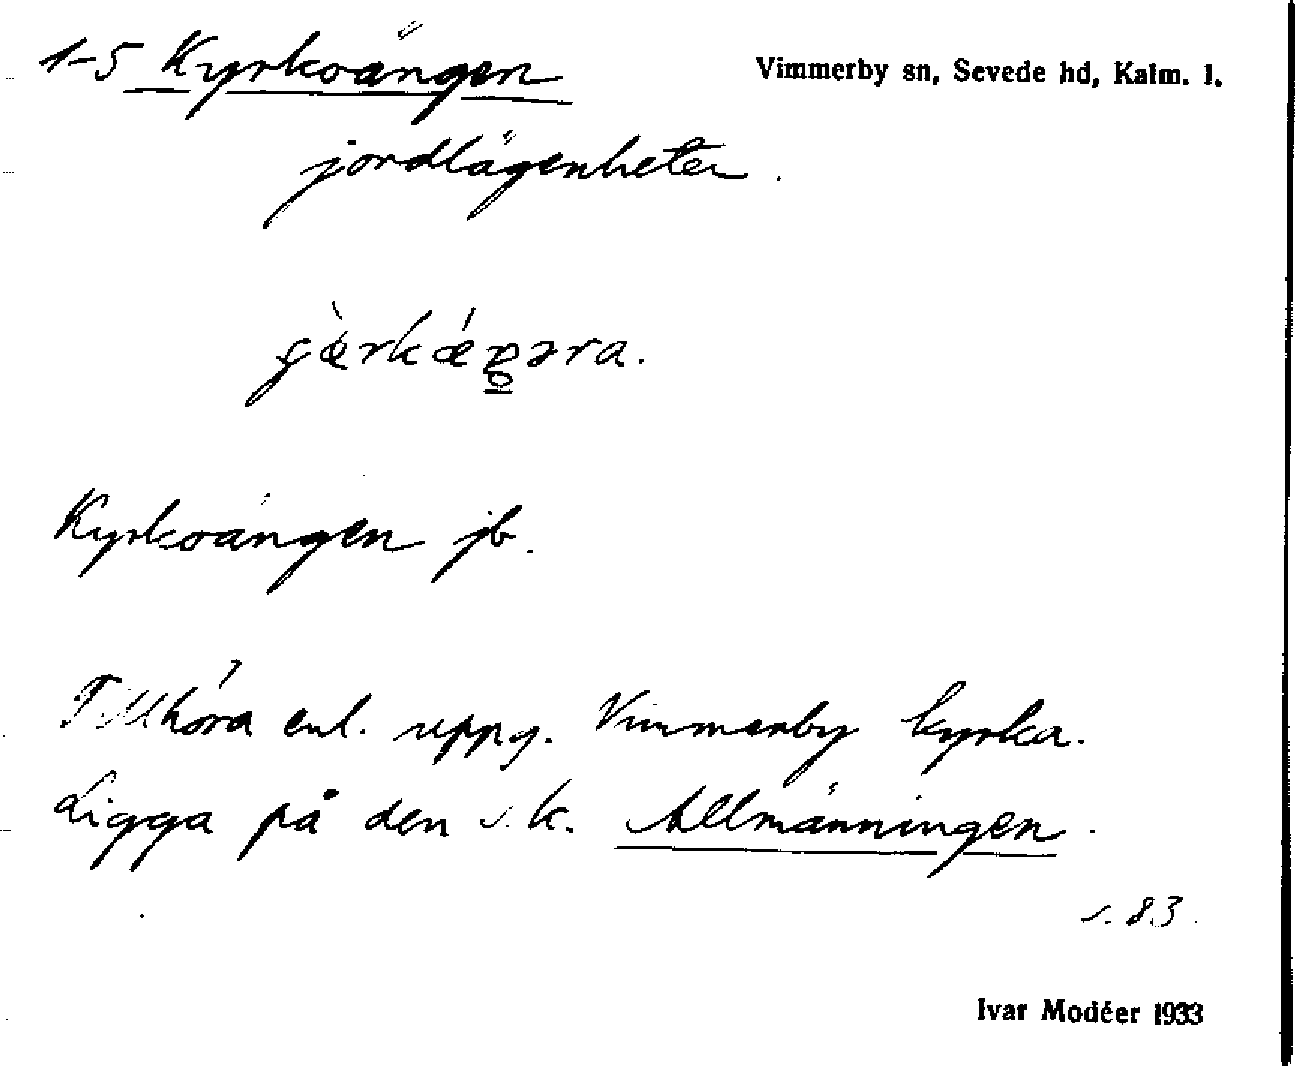 1-5 Kyrkoängen
Vimmerby sn, Sevede hd, Kalm. l.
jordlägenheter.
Kyrkoängen jb.
Tillhöra enl. uppg. Vimmerby kyrka.
Ligga på den s.k. Allmänningen.
s. 83.
Ivar Modéer 1933